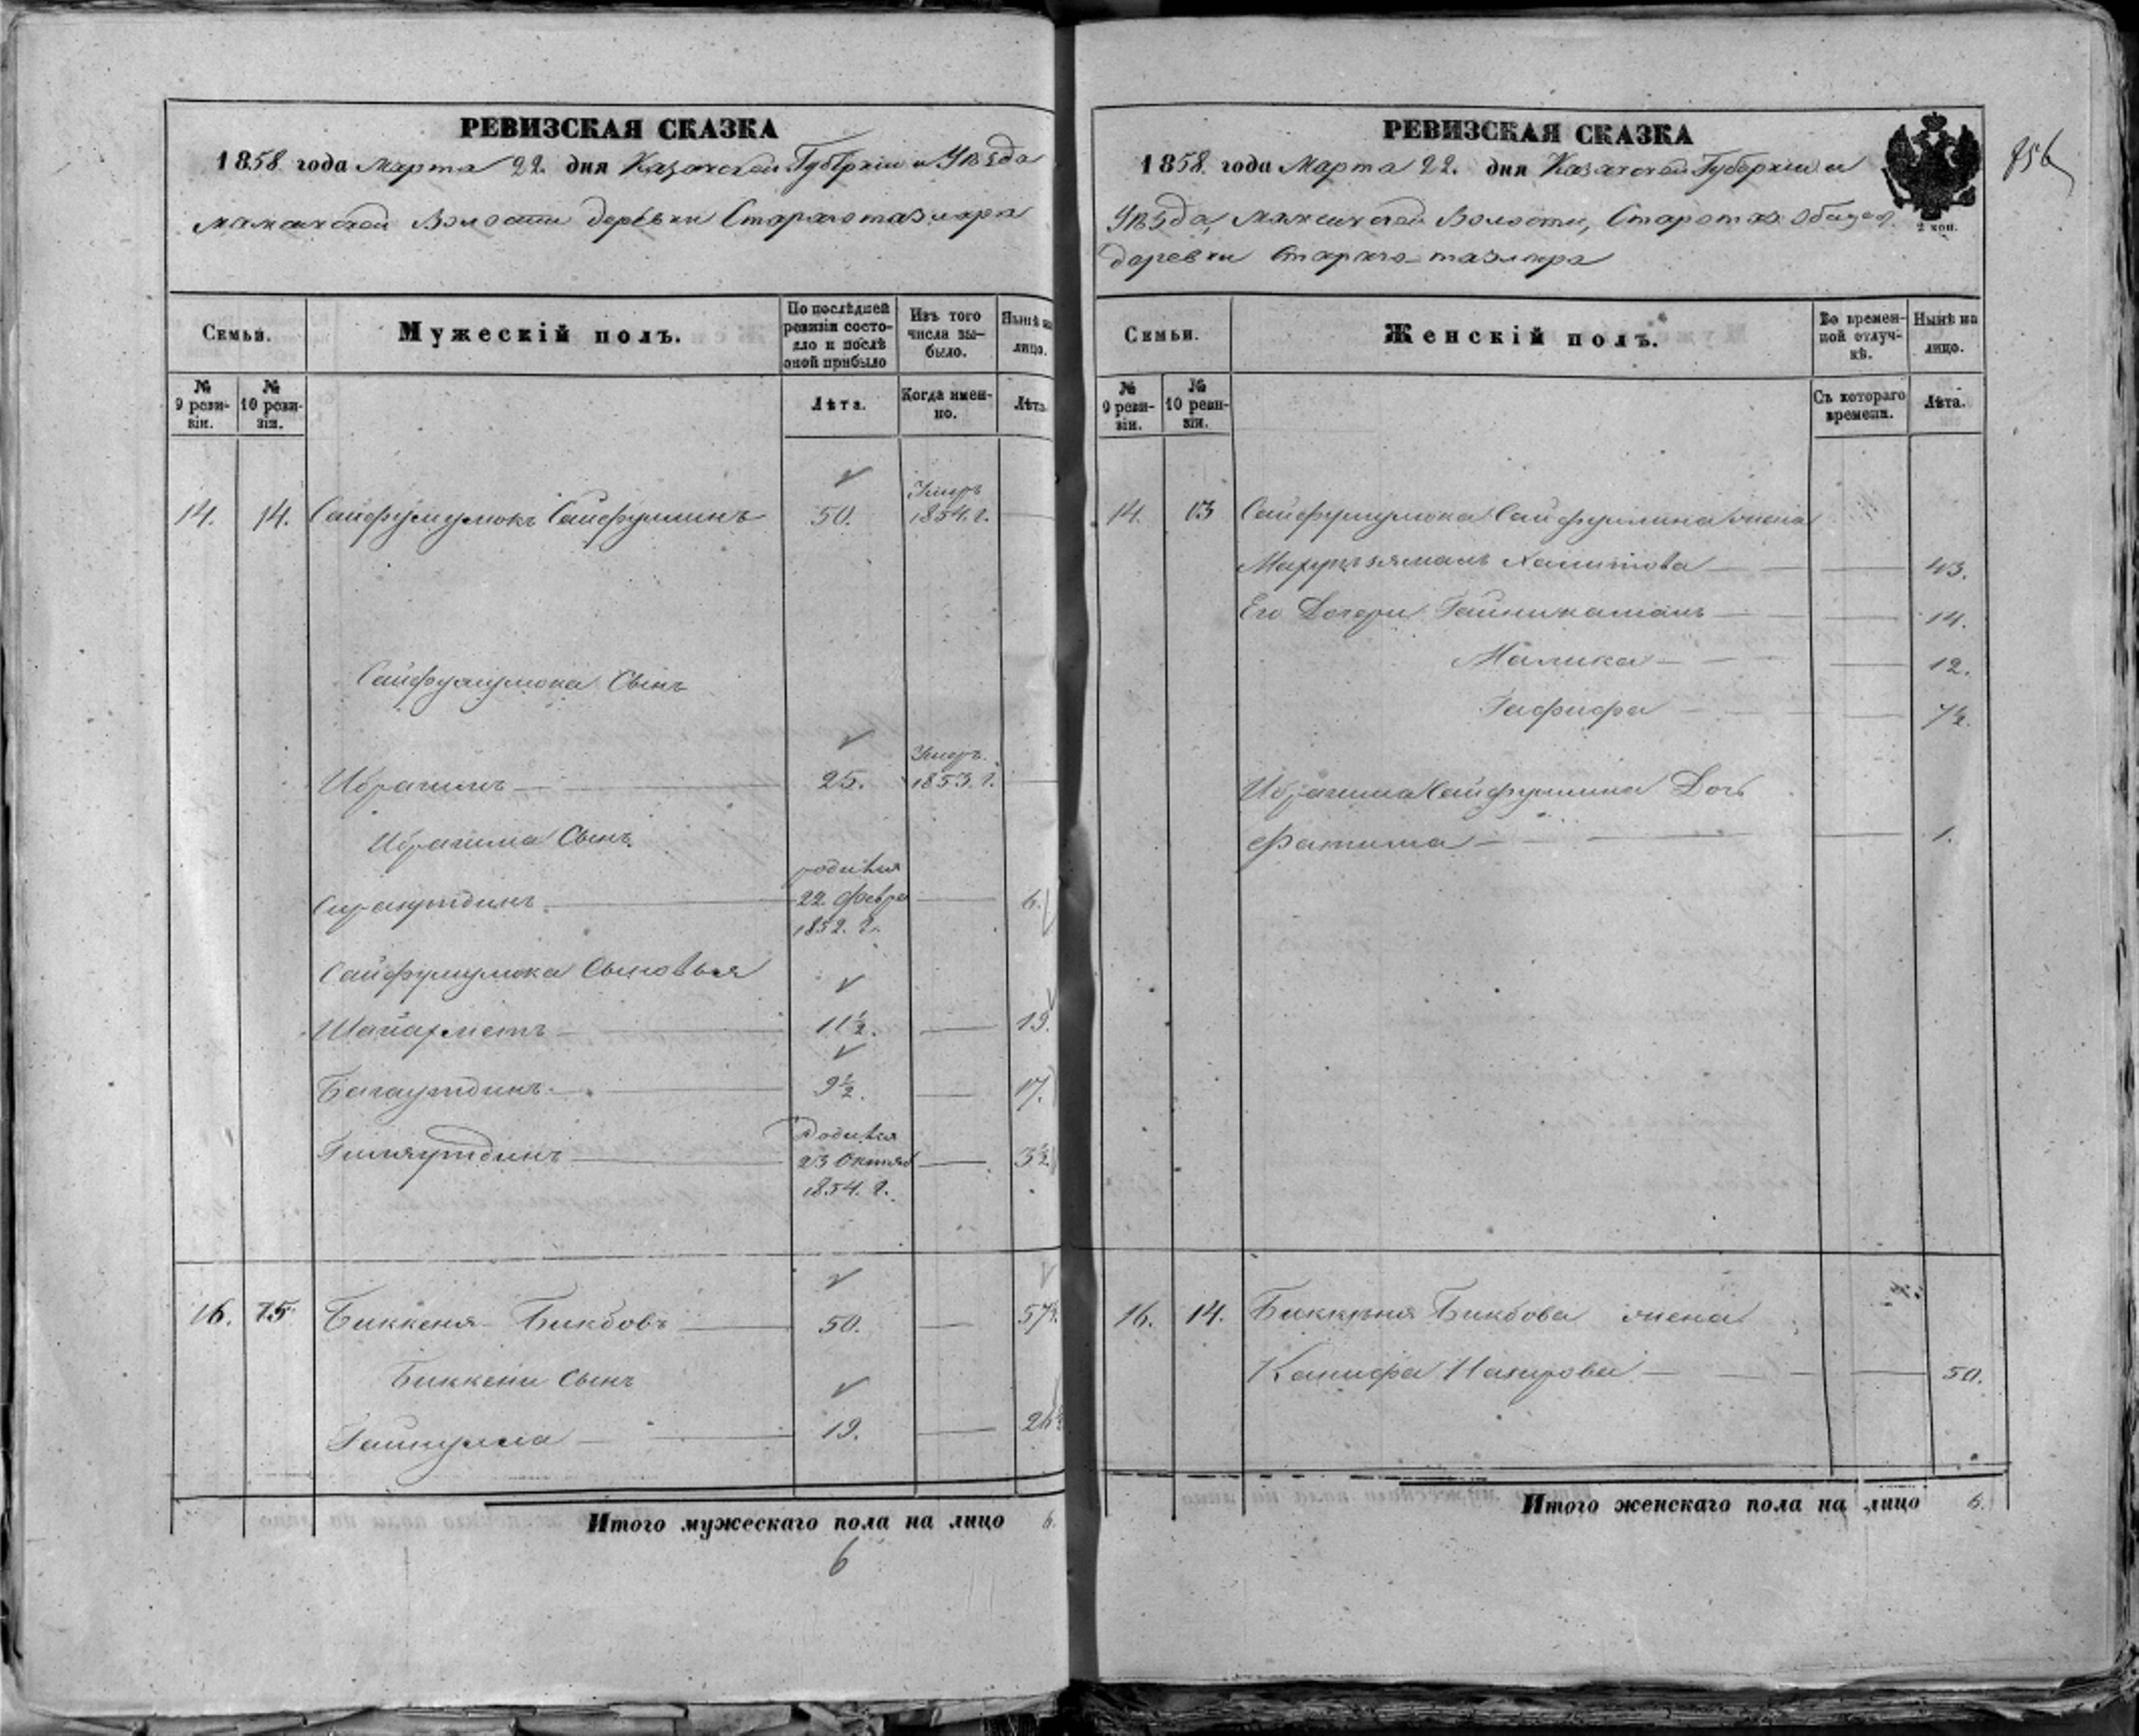 РЕВИЗСКАЯ СКАЗКА
1858 года Марта 22. дня Казанской Губерніи и Уѣзда
Мамсинской Волости деревни Старого тазлара
Семьи.
Мужескій полъ.
По послѣдней ревизіи состояло и послѣ оной прибыло
Изъ того числа выбыло.
Нынѣ на лицо.
№ 9 ревизіи.
№ 10 ревизіи.
Лѣта.
Когда именно.
Лѣта
14. 14. Сайфулмулюкъ Сайфуллинъ 50. Умеръ 1854. г.
Сайфулмулюка Сынъ
Ибрагимъ 25. Умеръ. 1853. г.
Ибрагима Сынъ
Сиразутдинъ родился 22 февра 1852. г. 6.
Сайфулмулюка Сыновья
Шайахметъ 11½. 19.
Багаутдинъ 9½. 17.
Гиляутдинъ Родился 23 Октяб 1854. г. 3½
16. 15 Биккеня Бикбовъ 50. 57½
Биккени Сынъ
Гайнулла 19. 26½
Итого мужескаго пола на лицо 6.
6
РЕВИЗСКАЯ СКАЗКА
1858. года Марта 22. дня Казанской Губерніи и
Уѣзда, Волости,
деревни Старого-тазлара
2 коп.
856
Семьи.
Женскій полъ.
Во временной отлучкѣ.
Нынѣ на лицо.
№ 9 ревизіи.
№ 10 ревизіи.
Съ котораго времени.
Лѣта.
14. 13 Сайфулмулюка Сайфуллина жена
Махупзямалъ Халитова 43.
Его Дочери Гайникамалъ 14.
Малика 12.
Гафифа 7½.
Ибрагима Сайфуллина Дочь
Фатима 1.
16. 14. Биккеня Бикбова жена
Канифа Назирова 50.
Итого женскаго пола на лицо 6.